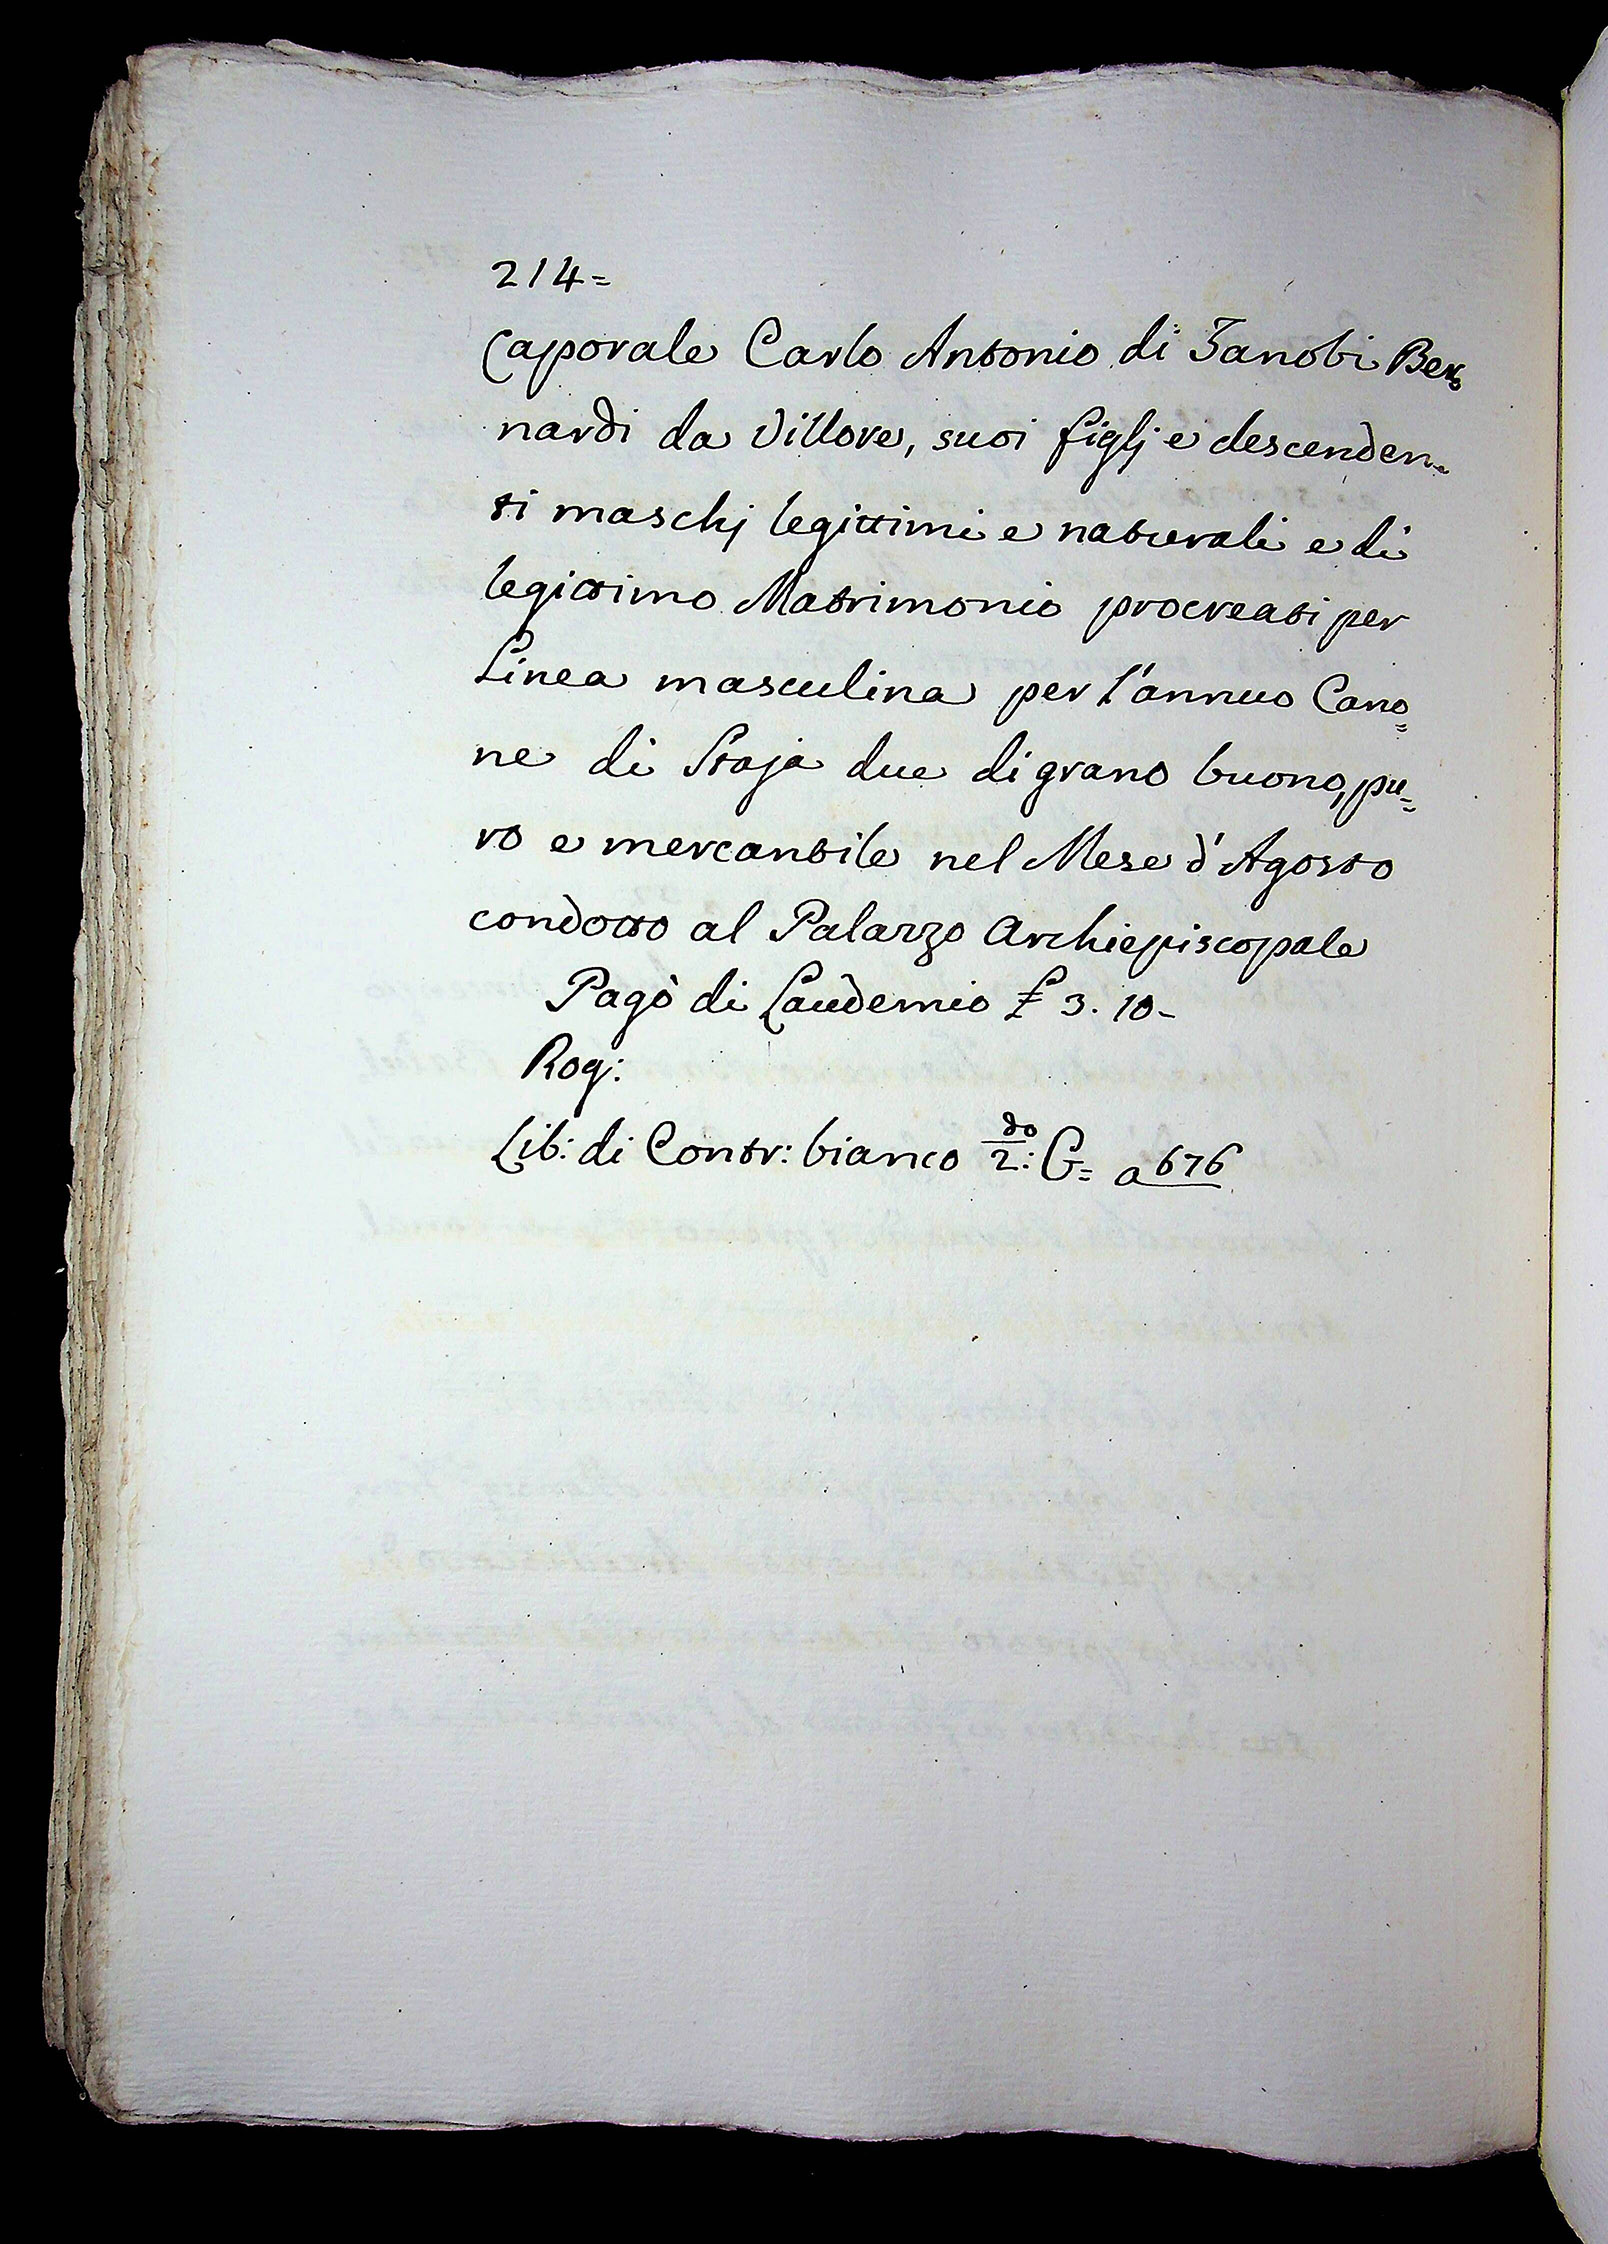 214=
Caporale Carlo Antonio di Zanobi Ber=
nardi da Villore, suoi figlj e descenden=
ti maschj legittimi e naturali e di
legittimo Matrimonio procreati per
Linea masculina per l'annuo Cano=
ne di Staja due di grano buono, pu=
ro e mercantile nel Mese d'Agosto
condotto al Palazzo Archiepiscopale
Pagò di Laudemio £ 3. 10-
Rog:
Lib: di Contr: bianco 2:do G= a 676